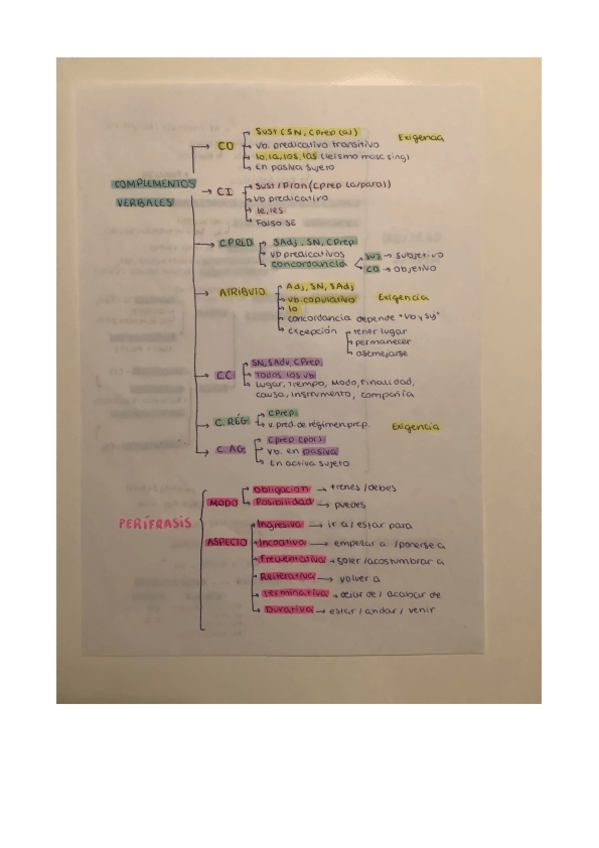 COMPLEMENTOS VERBALES
CD
Sust (SN, CPrep (a))
Exigencia
vb. predicativo transitivo
lo, la, los, las (leísmo masc sing)
En pasiva sujeto
CI
Sust / Pron (CPrep (a/para))
vb predicativo
le, les
Falso SE
CPRED
SAdj, SN, CPrep
vb predicativos
concordancia
SUJ → subjetivo
CD → objetivo
ATRIBUTO
Adj, SN, SAdj
Exigencia
vb. copulativo
lo
concordancia depende "vb y suj"
excepción
tener lugar
permanecer
asemejarse
CC
SN, SAdv, CPrep
Todos los vb
Lugar, Tiempo, Modo, Finalidad,
causa, instrumento, compañía
C. RÉG
CPrep
v. pred. de régimen prep.
Exigencia
C. AG
Cprep (por)
vb. en pasiva
En activa sujeto
PERÍFRASIS
MODO
Obligación → tienes / debes
Posibilidad → puedes
ASPECTO
Ingresiva → ir a / estar para
Incoativa → empezar a / ponerse a
Frecuentativa → soler / acostumbrar a
Reiterativa → volver a
Terminativa → dejar de / acabar de
Durativa → estar / andar / venir